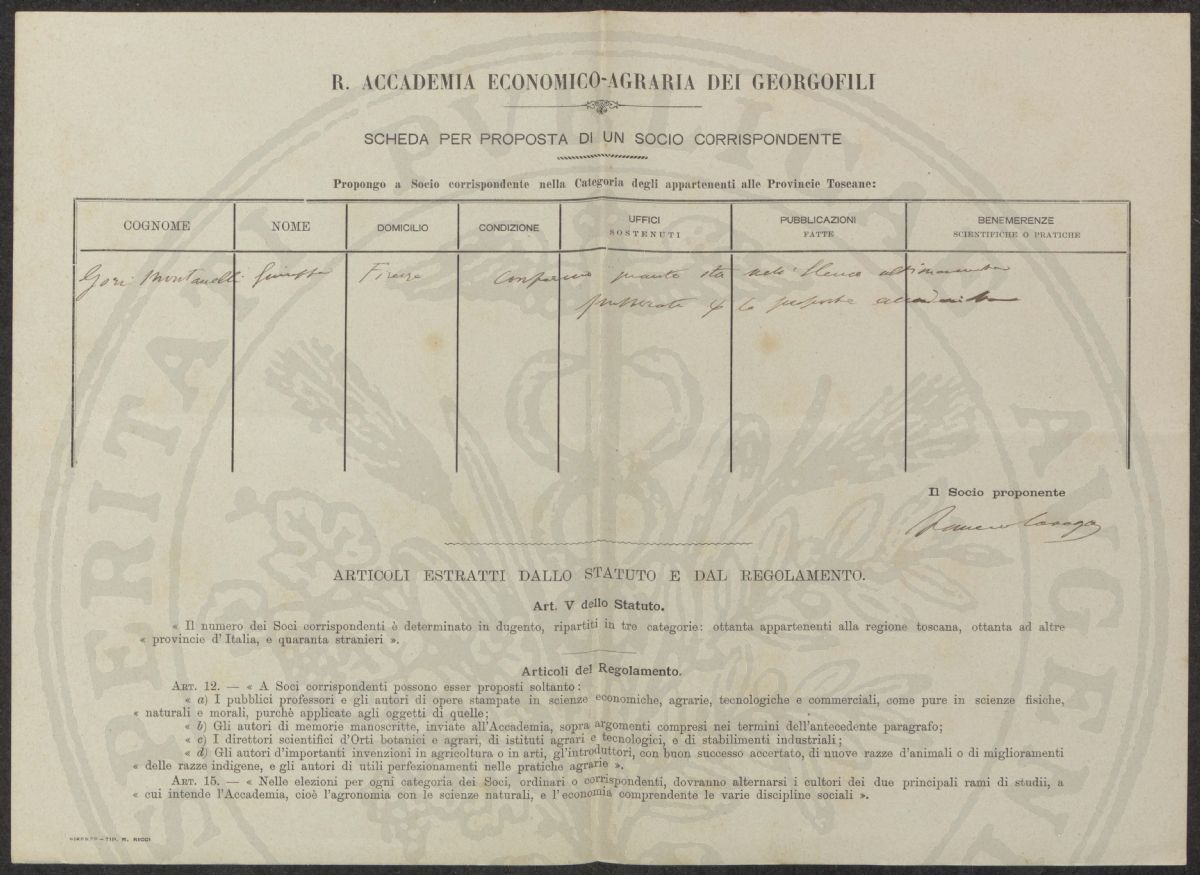 R. ACCADEMIA ECONOMICO-AGRARIA DEI GEORGOFILI
SCHEDA PER PROPOSTA DI UN SOCIO CORRISPONDENTE
Propongo a Socio corrispondente nella Categoria degli appartenenti alle Provincie Toscane:
COGNOME NOME DOMICILIO CONDIZIONE UFFICI SOSTENUTI PUBBLICAZIONI FATTE BENEMERENZE SCIENTIFICHE O PRATICHE
Gori Montanelli Giuseppe Firenze quanto sta nell'Elenco
la proposta
Il Socio proponente
ARTICOLI ESTRATTI DALLO STATUTO E DAL REGOLAMENTO.
Art. V dello Statuto.
« Il numero dei Soci corrispondenti è determinato in dugento, ripartiti in tre categorie: ottanta appartenenti alla regione toscana, ottanta ad altre
« provincie d'Italia, e quaranta stranieri ».
Articoli del Regolamento.
ART. 12. — « A Soci corrispondenti possono esser proposti soltanto:
« a) I pubblici professori e gli autori di opere stampate in scienze economiche, agrarie, tecnologiche e commerciali, come pure in scienze fisiche,
« naturali e morali, purchè applicate agli oggetti di quelle;
« b) Gli autori di memorie manoscritte, inviate all'Accademia, sopra argomenti compresi nei termini dell'antecedente paragrafo;
« c) I direttori scientifici d'Orti botanici e agrari, di istituti agrari e tecnologici, e di stabilimenti industriali;
« d) Gli autori d'importanti invenzioni in agricoltura o in arti, gl'introduttori, con buon successo accertato, di nuove razze d'animali o di miglioramenti
« delle razze indigene, e gli autori di utili perfezionamenti nelle pratiche agrarie ».
ART. 15. — « Nelle elezioni per ogni categoria dei Soci, ordinari o corrispondenti, dovranno alternarsi i cultori dei due principali rami di studii, a
« cui intende l'Accademia, cioè l'agronomia con le scienze naturali, e l'economia comprendente le varie discipline sociali ».
FIRENZE — TIP. M. RICCI